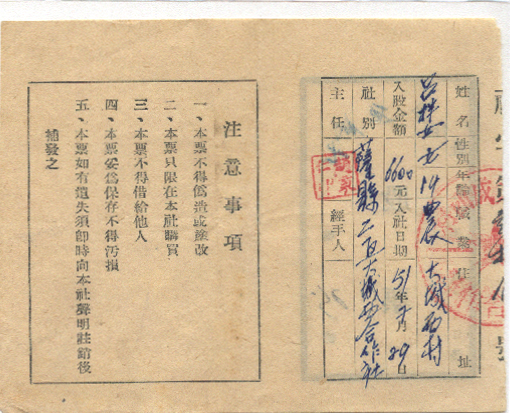 姓名 性別 年齡 職業 住址
女 19 農 大城西村
入股金額 6600元 入社日期 51年7月29日
社別 薩縣二區大城西合作社
主任 經手人
注意事項
一、本票不得僞造或塗改
二、本票只限在本社購買
三、本票不得借給他人
四、本票妥爲保存不得汚損
五、本票如有遺失須卽時向本社聲明註銷後
補發之